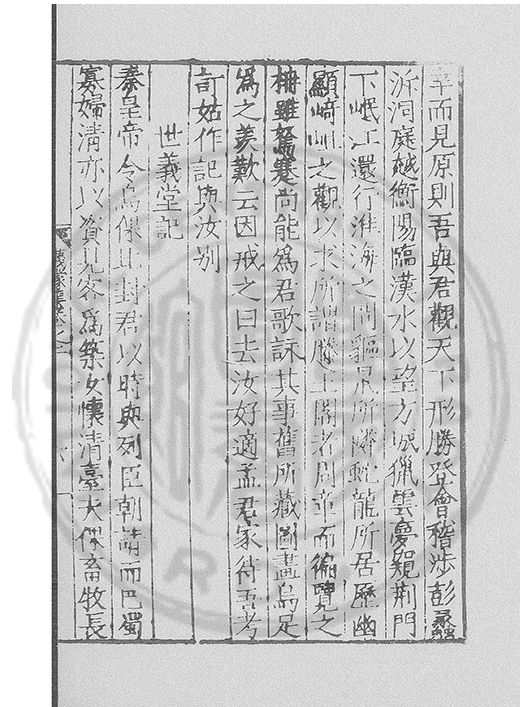 幸而見原則吾與君觀天下形勝登會稽涉彭蠡
泝洞庭越衡陽臨漢水以望方城獵雲夢覜荊門
下岷江還行淮海之間驅鼠所蛇龍所居歷幽
顯崎嶇之觀以求所謂勝王閣者周章而徧覽之
雖駑蹇尚能為君歌詠其事舊所藏圖畫烏足
為之羨歎云因戒之曰去汝好適孟君家待吾考
訂姑作記與汝別
世義堂記
秦皇帝令烏倮比封君以時與列臣朝請而巴蜀
寡婦清亦以貲見客為築女懷清臺夫倮畜牧長